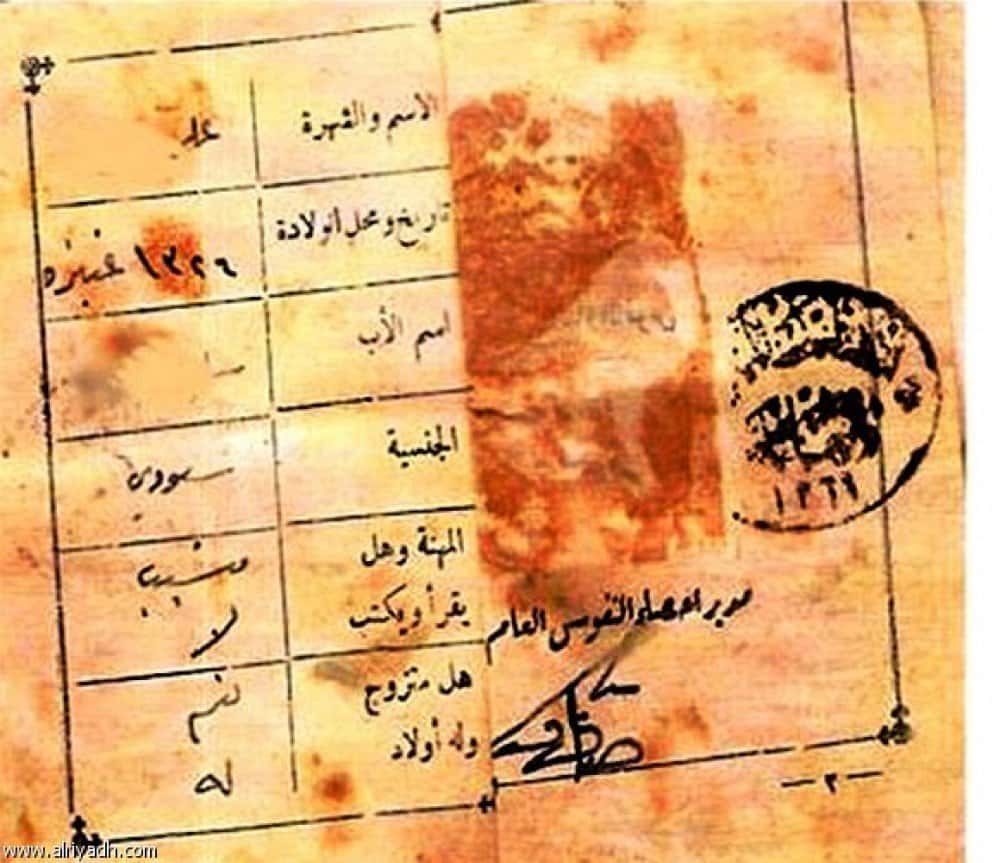 الأسم والشهرة
علي
تاريخ ومحل الولادة
١٣٢٦ عنيزه
اسم الأب
الجنسية
سعودي
المهنة وهل
يقرأ ويكتب
لا
هل متزوج
نعم
وله أولاد
له
مدير احصاء النفوس العام
١٣٦٩
— ٢ —
www.alriyadh.com